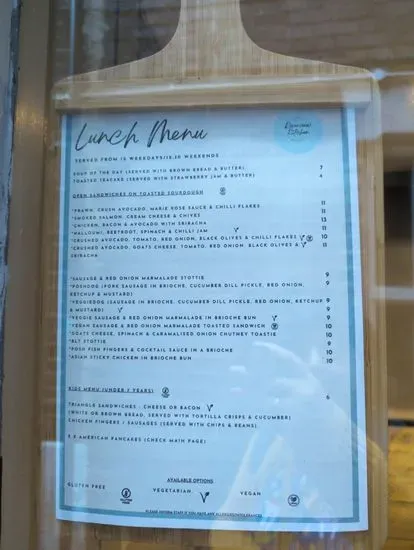 Lunch Menu
Kitchen
SERVED FROM 12 WEEKDAYS/12.30 WEEKENDS
SOUP OF THE DAY (SERVED WITH BROWN BREAD & BUTTER) 7
TOASTED TEACAKE (SERVED WITH STRAWBERRY JAM & BUTTER) 4
OPEN SANDWICHES ON TOASTED SOURDOUGH
*PRAWN, CRUSH AVOCADO, MARIE ROSE SAUCE & CHILLI FLAKES 11
*SMOKED SALMON, CREAM CHEESE & CHIVES 11
*CHICKEN, BACON & AVOCADO WITH SRIRACHA 13
*HALLOUMI, BEETROOT, SPINACH & CHILLI JAM 11
*CRUSHED AVOCADO, TOMATO, RED ONION, BLACK OLIVES & CHILLI FLAKES 10
*CRUSHED AVOCADO, GOATS CHEESE, TOMATO, RED ONION, BLACK OLIVES & 11
SRIRACHA
*SAUSAGE & RED ONION MARMALADE STOTTIE 9
*POSHDOG (PORK SAUSAGE IN BRIOCHE, CUCUMBER DILL PICKLE, RED ONION, 9
KETCHUP & MUSTARD)
*VEGGIEDOG (SAUSAGE IN BRIOCHE, CUCUMBER DILL PICKLE, RED ONION, KETCHUP
& MUSTARD) 9
*VEGGIE SAUSAGE & RED ONION MARMALADE IN BRIOCHE BUN 9
*VEGAN SAUSAGE & RED ONION MARMALADE TOASTED SANDWICH 10
*GOATS CHEESE, SPINACH & CARAMALISED ONION CHUTNEY TOASTIE 10
*BLT STOTTIE 9
*POSH FISH FINGERS & COCKTAIL SAUCE IN A BRIOCHE 10
*ASIAN STICKY CHICKEN IN BRIOCHE BUN 10
KIDS MENU (UNDER 7 YEARS) 6
TRIANGLE SANDWICHES - CHEESE OR BACON
(WHITE OR BROWN BREAD, SERVED WITH TORTILLA CRISPS & CUCUMBER)
CHICKEN FINGERS / SAUSAGES (SERVED WITH CHIPS & BEANS)
AMERICAN PANCAKES (CHECK MAIN PAGE)
AVAILABLE OPTIONS
GLUTEN FREE VEGETARIAN VEGAN
PLEASE INFORM STAFF IF YOU HAVE ANY ALLERGIES/INTOLERANCES